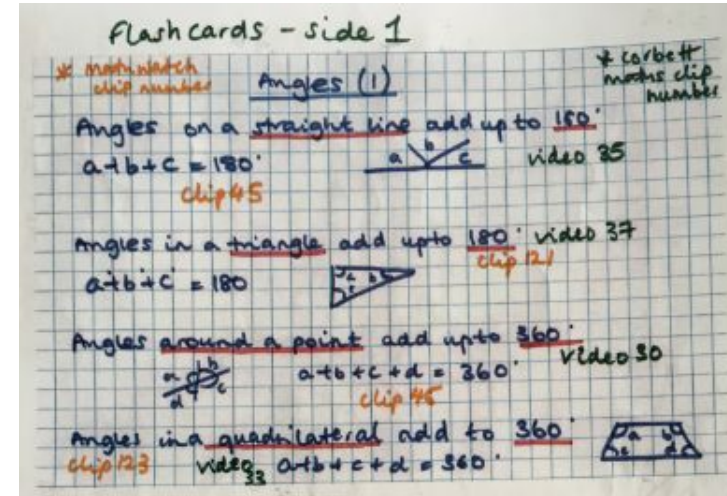 Flashcards - side 1
* mathwatch clip number
Angles (1)
* corbett maths clip number
Angles on a straight line add up to 180°
a+b+c = 180°
a b c
video 35
clip 45
Angles in a triangle add upto 180° video 37
clip 121
a+b+c = 180
a b c
Angles around a point add upto 360°
video 30
a b c d
a+b+c+d = 360°
clip 45
Angles in a quadrilateral add to 360°
a b c d
clip 123 video 33 a+b+c+d = 360°